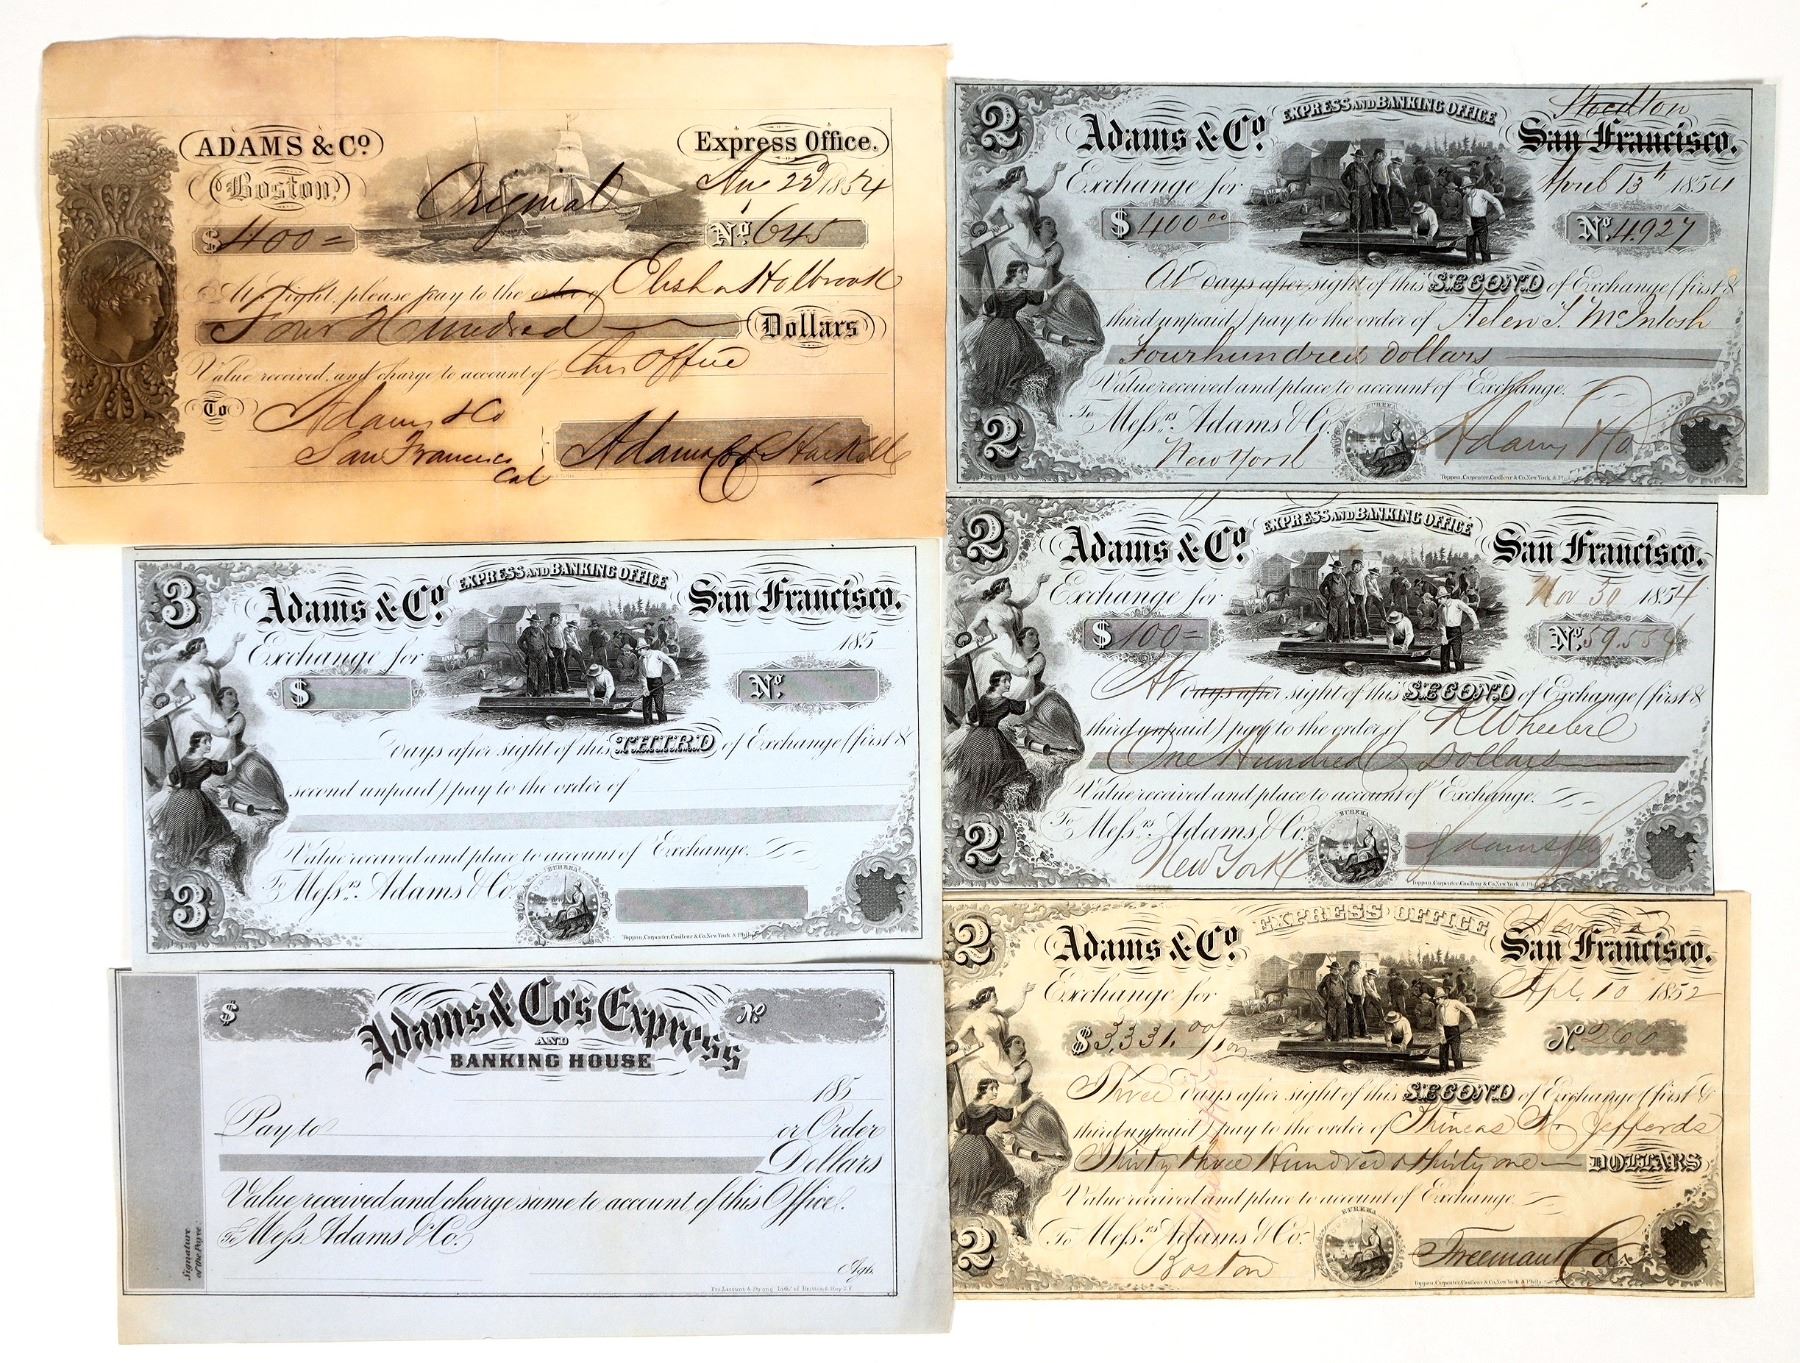 ADAMS & Co.
Express Office.
Boston,
Original
Aug 22d 1854
$ 400 =
No. 645
At sight, please pay to the order of Elisha Holbrook
Four Hundred Dollars
Value received, and charge to account of this Office
To Adams & Co
San Francisco
Cal
Adams & Co
2
Adams & Co.
EXPRESS AND BANKING OFFICE
Stockton
San Francisco.
Exchange for
April 13th 1854
$ 400 00
No. 4927
At days after sight of this SECOND of Exchange (first &
third unpaid) pay to the order of Helen S. McIntosh
Four hundred dollars
Value received and place to account of Exchange.
To Messrs. Adams & Co.
New York
EUREKA
Adams & Co
2
Toppan, Carpenter, Casilear & Co. New York & Phila.
3
Adams & Co.
EXPRESS AND BANKING OFFICE
San Francisco.
Exchange for
185
$
No.
days after sight of this THIRD of Exchange (first &
second unpaid) pay to the order of
Value received and place to account of Exchange.
To Messrs. Adams & Co.
EUREKA
3
Toppan, Carpenter, Casilear & Co. New York & Phila.
2
Adams & Co.
EXPRESS AND BANKING OFFICE
San Francisco.
Exchange for
Nov 30 1854
$ 100 =
No. 59.554
At days after sight of this SECOND of Exchange (first &
third unpaid) pay to the order of R Wheeler
One Hundred Dollars
Value received and place to account of Exchange.
To Messrs. Adams & Co.
New York
EUREKA
Adams & Co
2
Toppan, Carpenter, Casilear & Co. New York & Phila.
$
Adams & Co's Express
No
AND
BANKING HOUSE
185
Pay to or Order
Dollars
Value received and charge same to account of this Office.
To Mess. Adams & Co.
Signature
of the Payee
Agt.
2
Adams & Co.
EXPRESS OFFICE
San Francisco.
Exchange for
Apl. 10 1852
$ 3,331. 00/100
No 260
Three days after sight of this SECOND of Exchange (first &
third unpaid) pay to the order of Phineas Jeffords
Thirty three Hundred & thirty one DOLLARS
Value received and place to account of Exchange.
To Messrs. Adams & Co.
Boston
EUREKA
Freeman & Co
2
Toppan, Carpenter, Casilear & Co. New York & Phila.